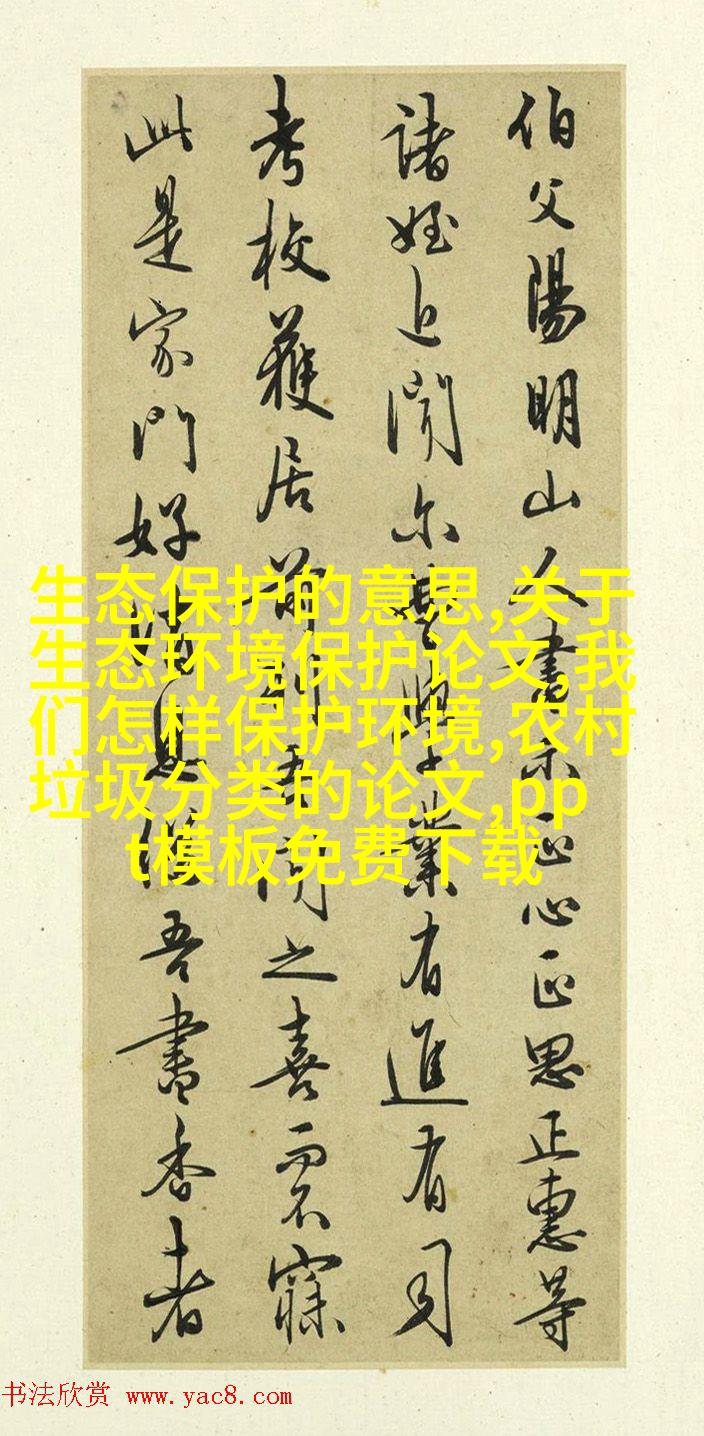 伯父陽明山人書示正心正思正惠等
諸姪近聞尔曹學業有進有司
考校獲居前列吾聞之喜而不寐
此是家門好消息繼吾書香者
生态保护的意思,关于
生态环境保护论文,我
们怎样保护环境,农村
垃圾分类的论文,pp
t模板免费下载
书法欣赏 www.yac8.com